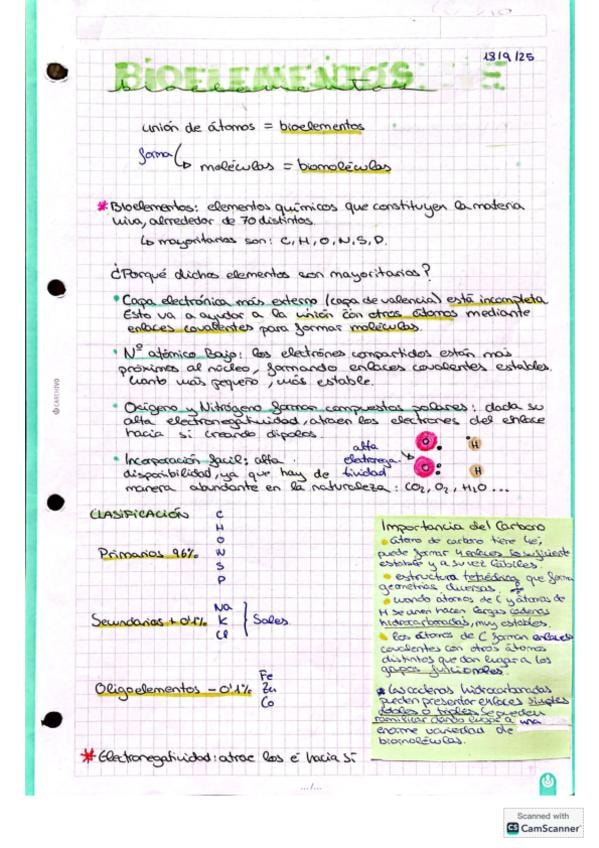 18/9/25
BIOELEMENTOS
bioelementos
unión de átomos = bioelementos
forma
↳ moléculas = biomoléculas
* Bioelementos: elementos químicos que constituyen la materia
viva, alrrededor de 70 distintos.
↳ mayoritarios son: C, H, O, N, S, P.
¿Porqué dichos elementos son mayoritarios?
• Capa electrónica más externa (capa de valencia) está incompleta
Esto va a ayudar a la unión con otros átomos mediante
enlaces covalentes para formar moléculas.
• Nº atómico Bajo: los electrónes compartidos están más
próximos al núcleo, formando enlaces covalentes estables.
Cuanto más pequeño, más estable.
• Oxígeno y Nitrógeno forman compuestos polares: dada su
alta electronegatividad, atraen los electrones del enlace
hacia sí creando dipolos.
• Incorporación facil: alta
disponibilidad, ya que hay de
manera abundante en la naturaleza: CO2, O2, H2O ...
alta
electronega
tividad
O
H
O
H
CLASIFICACIÓN
Primarios 96%
C
H
O
N
S
P
Secundarios + 0'1%
Na
K
Cl
Sales.
Oligoelementos - 0'1%
Fe
Zu
Co
* Electronegatividad: atrae los e⁻ hacia sí
Importancia del Carbono
• átomo de carbono tiene 4e⁻,
puede formar 4 enlaces lo suficiente
estables y a su vez lábiles.
• estructura tetédrica que forma
geometrías diversas.
• cuando átomos de C y átomos de
H se unen hacen largas cadenas
hidrocarbonadas, muy estables.
• los átomos de C forman enlaces
covalentes con otros átomos
distintos que dan lugar a los
grupos funcionales.
* Las cadenas hidrocarbonadas
pueden presentar enlaces simples
dobles o triples. Se pueden
ramificar dando lugar a una
enorme variedad de
biomoléculas.
CARCHIVO
.../...
Scanned with
CS CamScanner